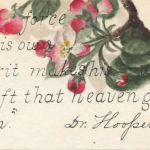 force
is own
rit makes his
ft that heaven g
n."
Dr. Hooper